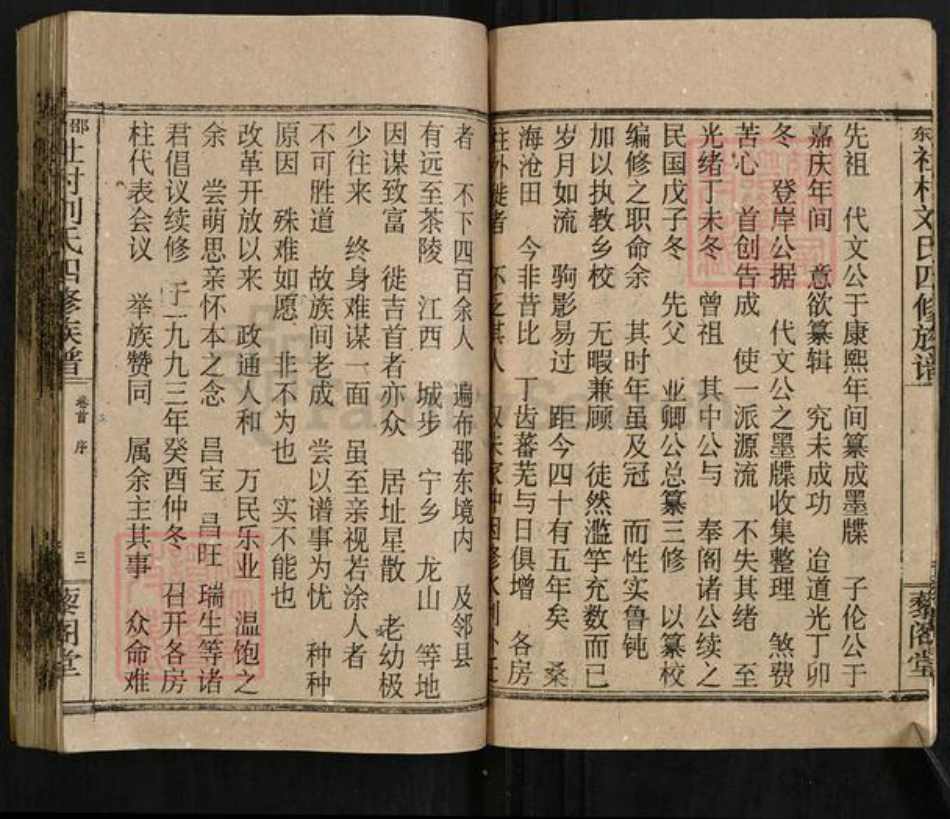 东 社村刘氏四修族谱
藜阁堂
先祖 代文公于康熙年间纂成墨牒 子伦公于
嘉庆年间 意欲纂辑 究未成功 迨道光丁卯
冬 登岸公据 代文公之墨牒收集整理 煞费
苦心 首创告成 使一派源流 不失其绪 至
光绪丁未冬 曾祖 其中公与 奉阁诸公续之
民国戊子冬 先父 业卿公总纂三修 以纂校
编修之职命余 其时年虽及冠 而性实鲁钝
加以执教乡校 无暇兼顾 徒然滥竽充数而已
岁月如流 驹影易过 距今四十有五年矣 桑
海沧田 今非昔比 丁齿蕃芜与日俱增 各房
往外徙者 不乏其人
者 不下四百余人 遍布邵东境内 及邻县
有远至茶陵 江西 城步 宁乡 龙山 等地
因谋致富 徙吉首者亦众 居址星散 老幼极
少往来 终身难谋一面 虽至亲视若涂人者
不可胜道 故族间老成 尝以谱事为忧 种种
原因 殊难如愿 非不为也 实不能也
改革开放以来 政通人和 万民乐业 温饱之
余 尝萌思亲怀本之念 昌宝 昌旺 瑞生等诸
君倡议续修 于一九九三年癸酉仲冬 召开各房
柱代表会议 举族赞同 属余主其事 众命难
邵 社村刘氏四修族谱
卷首 序
三
藜阁堂